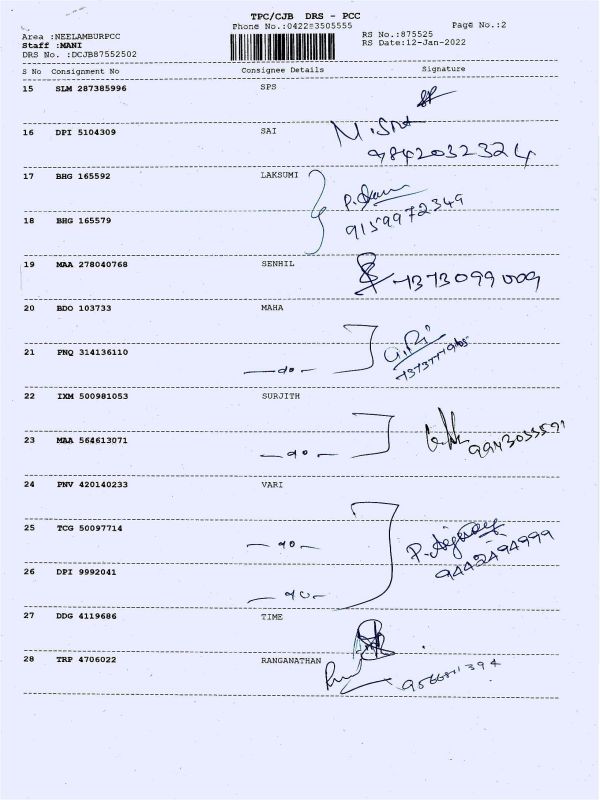 TPC/CJB DRS - PCC
Phone No.:042283505555 Page No.:2
Area :NEELAMBURPCC RS No.:875525
Staff :MANI RS Date:12-Jan-2022
DRS No. :DCJB87552502
S No Consignment No Consignee Details Signature
15 SLM 287385996 SPS
16 DPI 5104309 SAI
9842032324
17 BHG 165592 LAKSUMI
18 BHG 165579 9159972349
19 MAA 278040768 SENHIL 7373099009
20 BDO 103733 MAHA
21 PNQ 314136110 -do-
22 IXM 500981053 SURJITH
23 MAA 564613071 -do- 9943055591
24 PNV 420140233 VARI
25 TCG 50097714 -do-
9442494999
26 DPI 9992041 -do-
27 DDG 4119686 TIME
28 TRP 4706022 RANGANATHAN